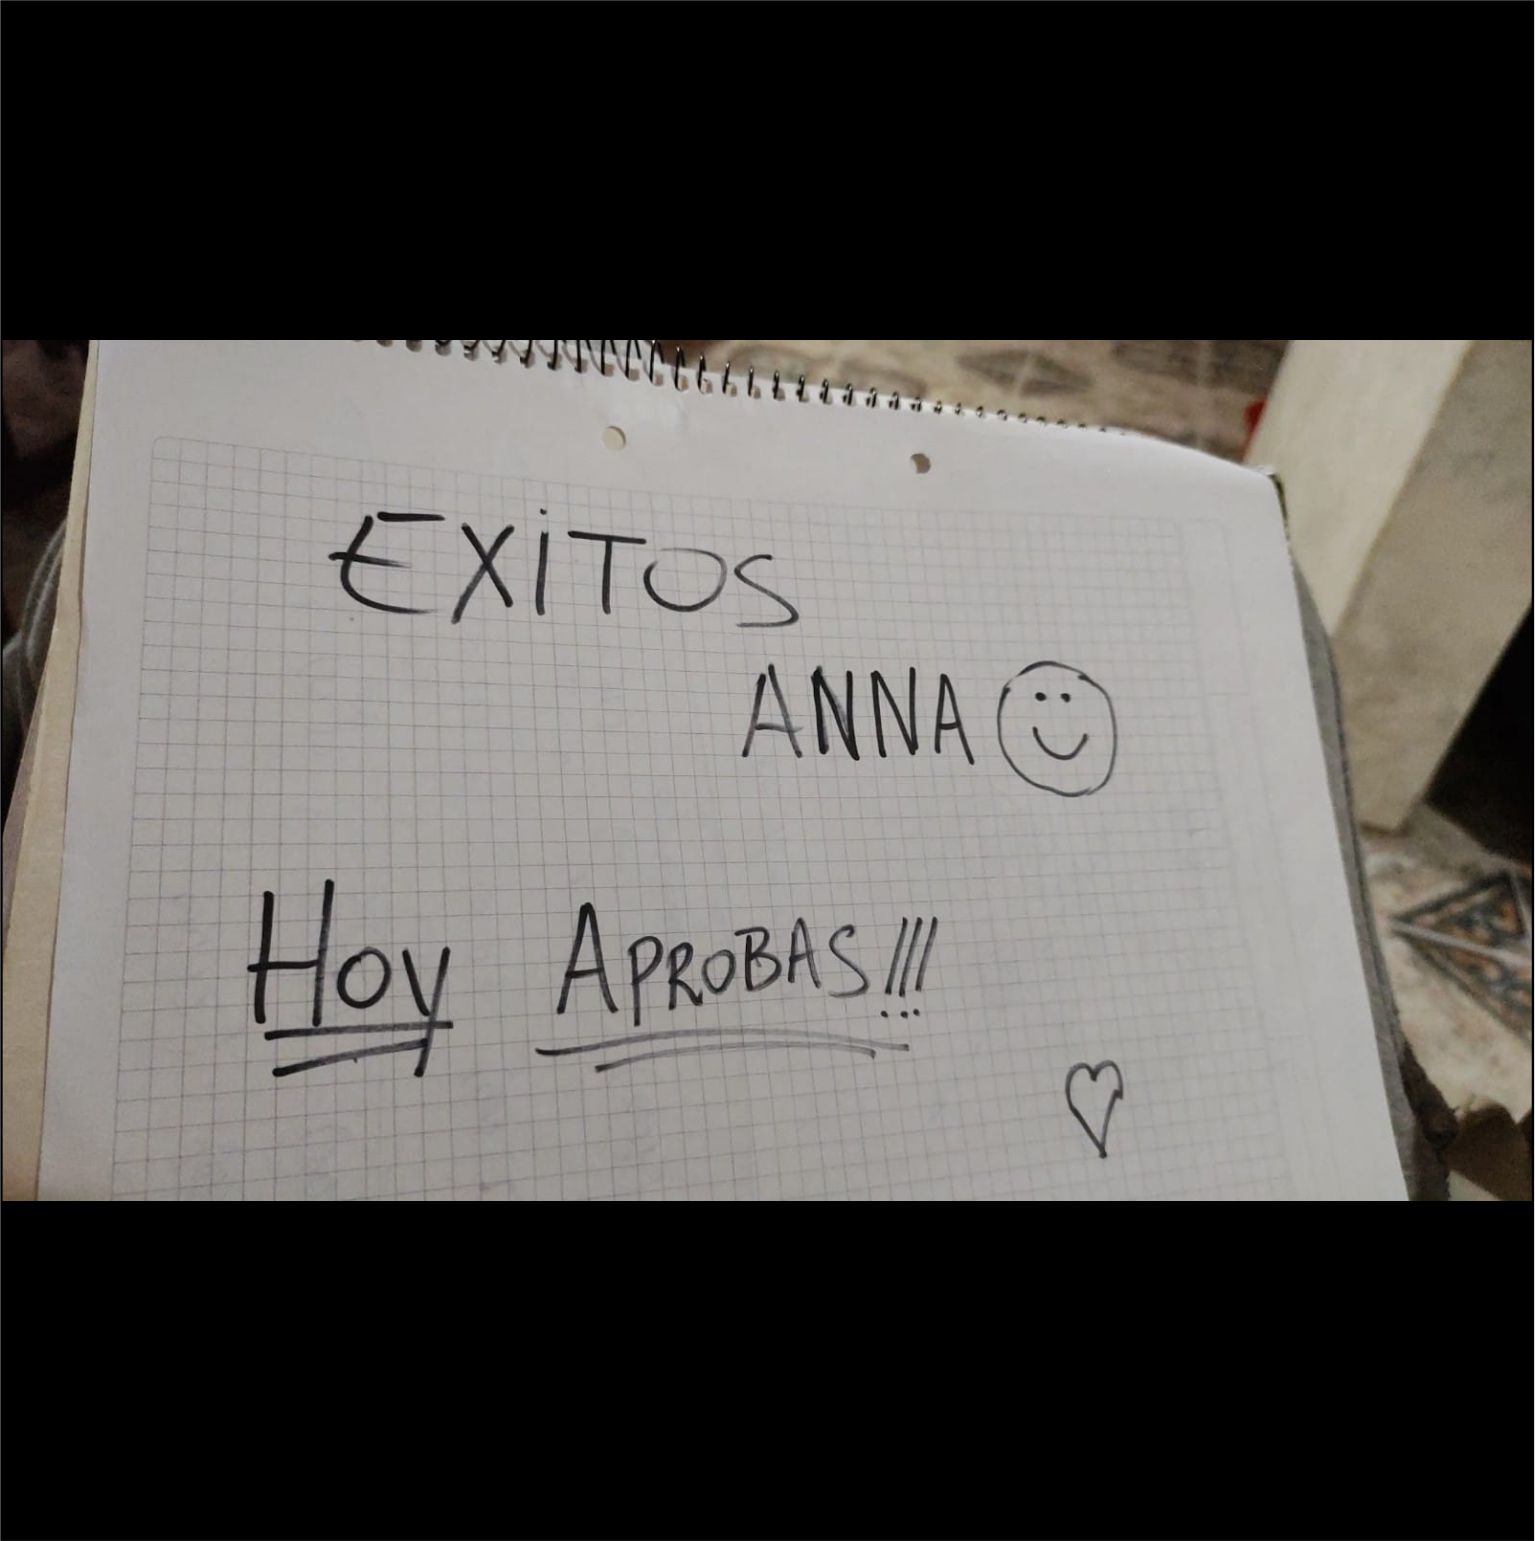 EXiTOS
ANNA
HOY APROBAS!!!